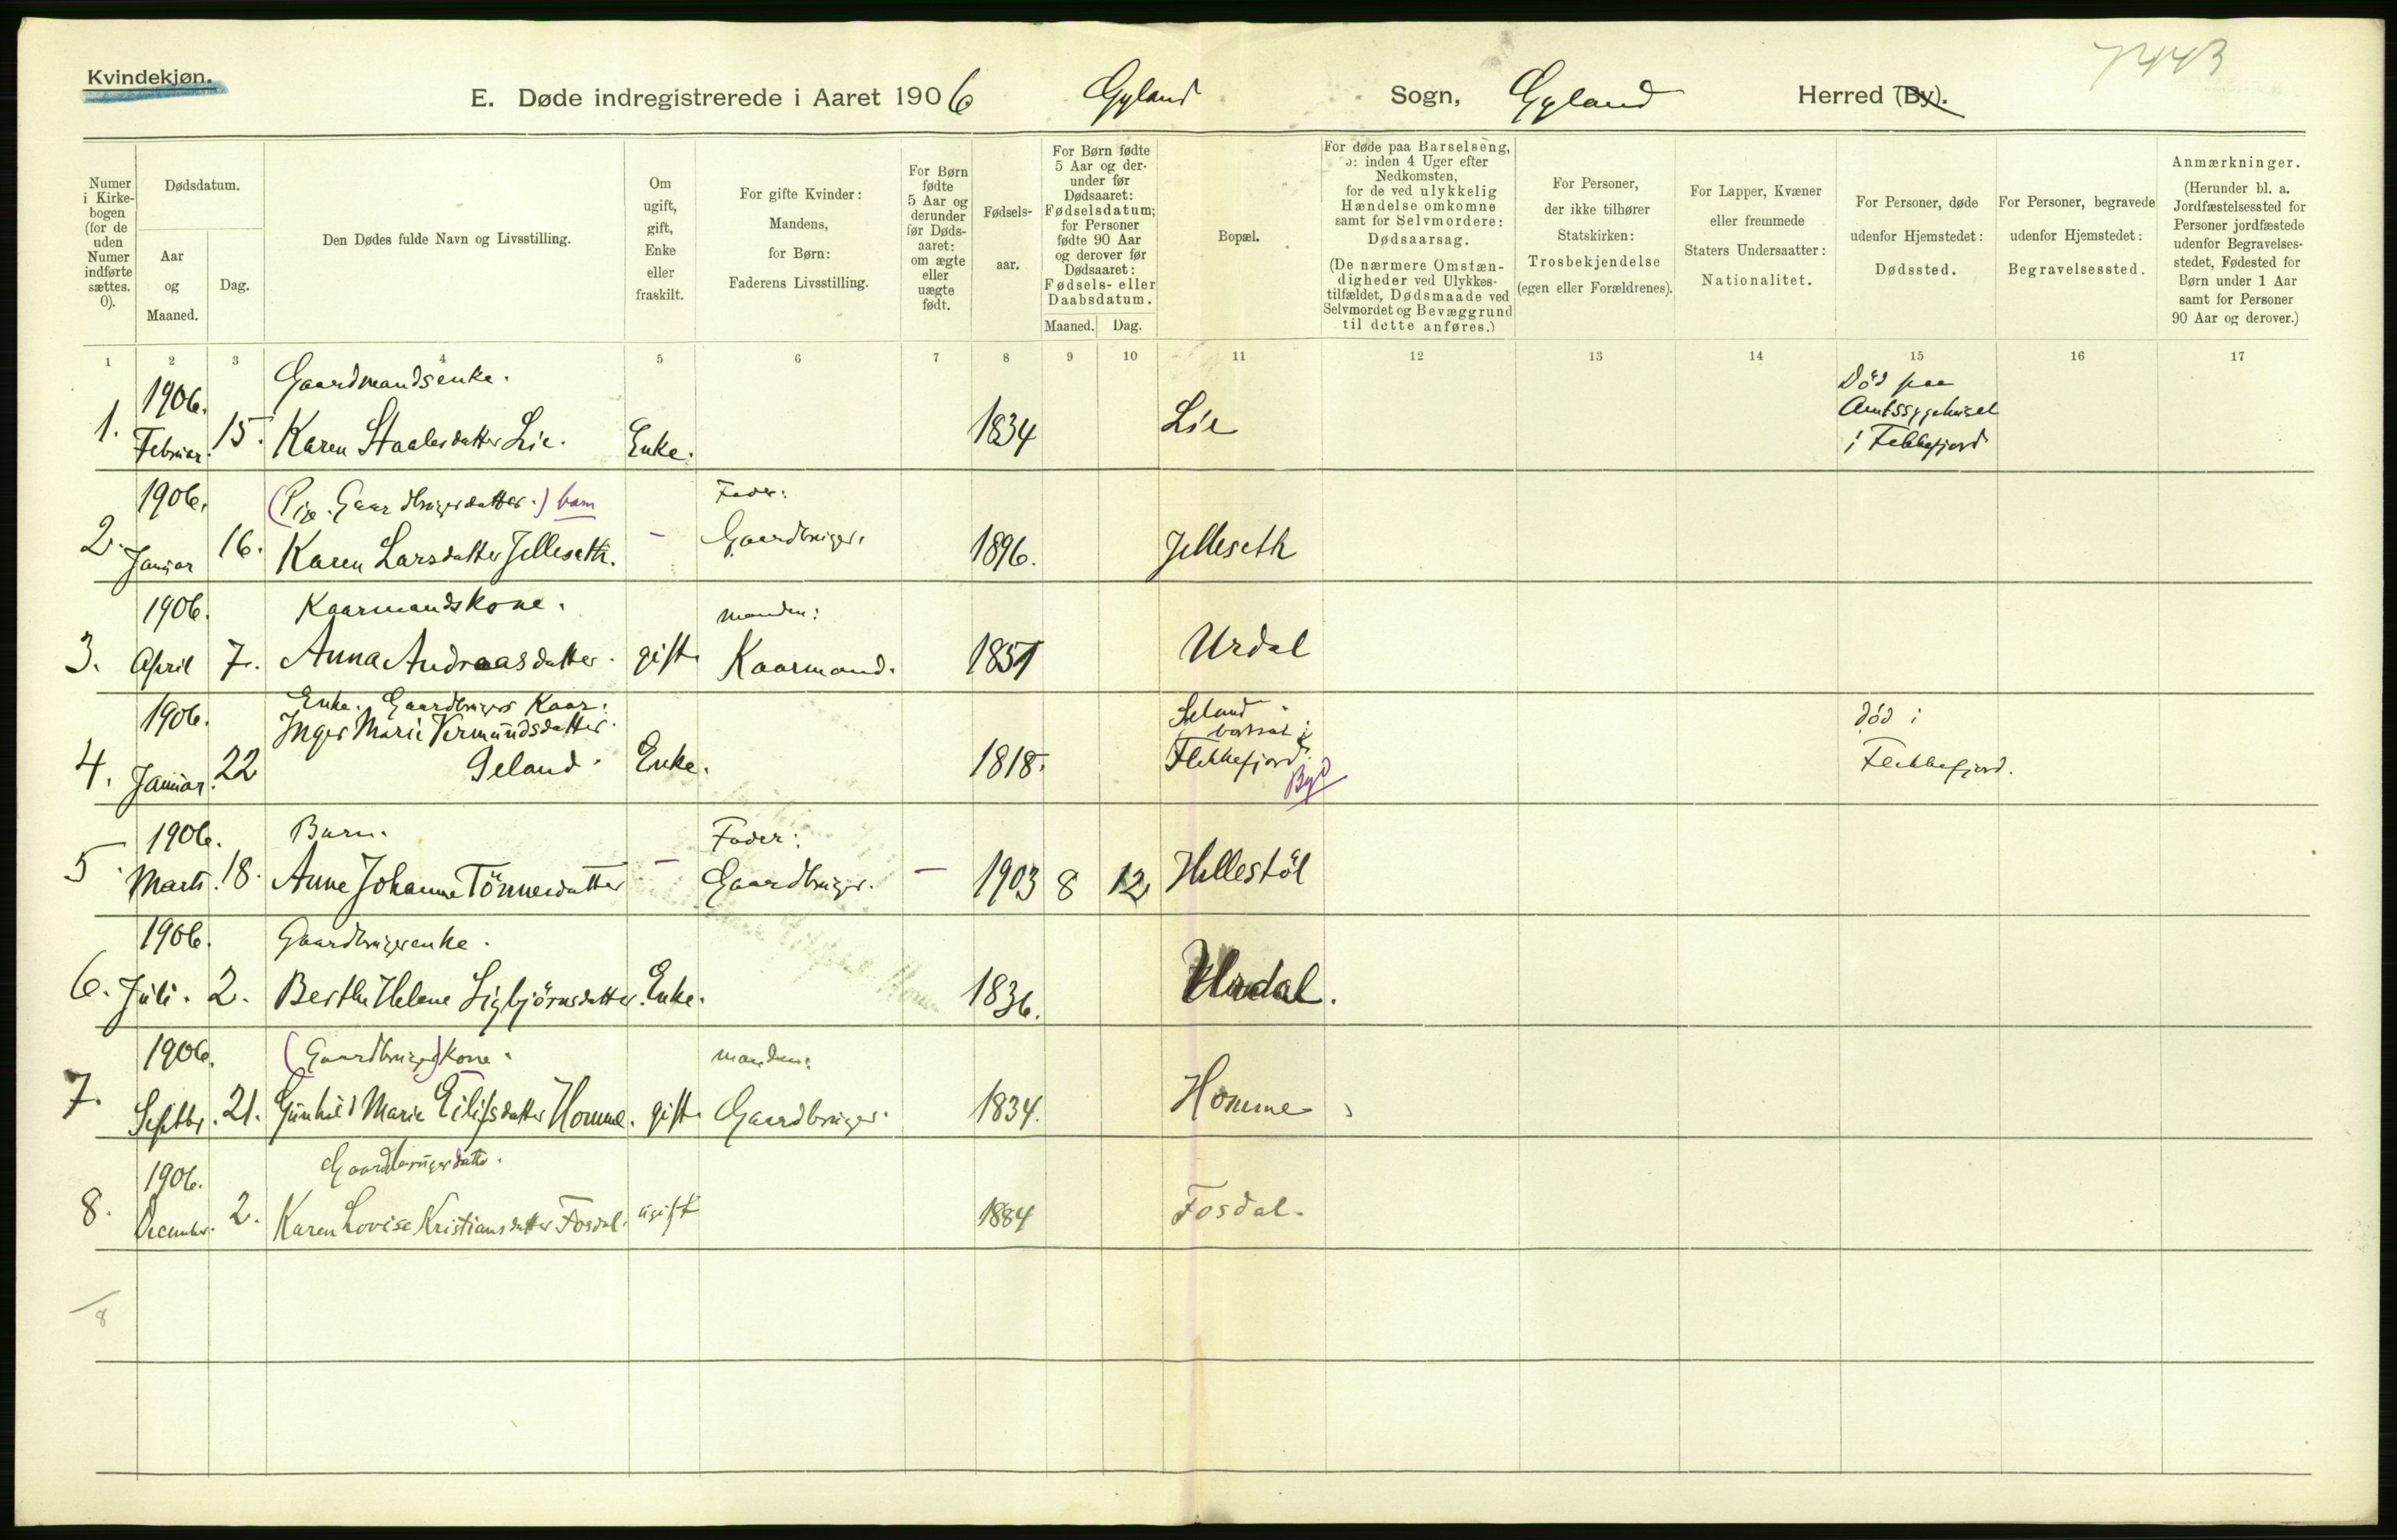 Kvindekjøn.
7443
E. Døde indregistrerede i Aaret 1906 Gyland Sogn, Gyland Herred (By).
Numer i Kirkebogen (for de uden Numer indførte sættes. 0).
Dødsdatum.
Aar og Maaned.
Dag.
Den Dødes fulde Navn og Livsstilling.
Om ugift, gift, Enke eller fraskilt.
For gifte Kvinder: Mandens, for Børn: Faderens Livsstilling.
For Børn fødte 5 Aar og derunder før Dødsaaret: om ægte eller uægte født.
Fødselsaar.
For Børn fødte 5 Aar og derunder før Dødsaaret: Fødselsdatum; for Personer fødte 90 Aar og derover før Dødsaaret: Fødsels- eller Daabsdatum.
Maaned. Dag.
Bopæl.
For døde paa Barselseng, ɔ: inden 4 Uger efter Nedkomsten, for de ved ulykkelig Hændelse omkomne samt for Selvmordere: Dødsaarsag. (De nærmere Omstændigheder ved Ulykkestilfældet, Dødsmaade ved Selvmordet og Bevæggrund til dette anføres.)
For Personer, der ikke tilhører Statskirken: Trosbekjendelse (egen eller Forældrenes).
For Lapper, Kvæner eller fremmede Staters Undersaatter: Nationalitet.
For Personer, døde udenfor Hjemstedet: Dødssted.
For Personer, begravede udenfor Hjemstedet: Begravelsessted.
Anmærkninger. (Herunder bl. a. Jordfæstelsessted for Personer jordfæstede udenfor Begravelsesstedet, Fødested for Børn under 1 Aar samt for Personer 90 Aar og derover.)
1 2 3 4 5 6 7 8 9 10 11 12 13 14 15 16 17
1906. Gaardmandsenke. Död paa
Amtssygehuset
1. Februar. 15. Karen Staalesdatter Lie. Enke. 1834 Lie i Flekkefjord
1906. (Pige. Gaardbrugerdatter.) barn Fader:
2. Januar 16. Karen Larsdatter Jelleseth. – Gaardbruger. 1896. Jelleseth
1906. Kaarmandskone. Manden:
3. April 7. Anna Andreasdatter. gift Kaarmand. 1851 Urdal
1906. Enke. Gaardbrugers Kaar. Seland
Inger Marie Vermundsdatter bosat i död i
4. Januar. 22 Seland. Enke. 1818. Flekkefjord. By Flekkefjord.
1906. Barn. Fader:
5. Marts. 18. Anne Johanne Tönnesdatter – Gaardbruger. – 1903 8 12 Hellestöl
1906. Gaardbrugerenke.
6. Juli. 2. Berthe Helene Sigbjörnsdatter. Enke. 1836. Urdal.
1906. (Gaardbruger)kone. Manden:
7. Septbr. 21. Gunhild Marie Eilifsdatter Homme. gift Gaardbruger. 1834. Homme
1906. Gaardbrugerdatter.
8. December. 2. Karen Lovise Kristiansdatter Fosdal. ugift 1884 Fosdal.
8